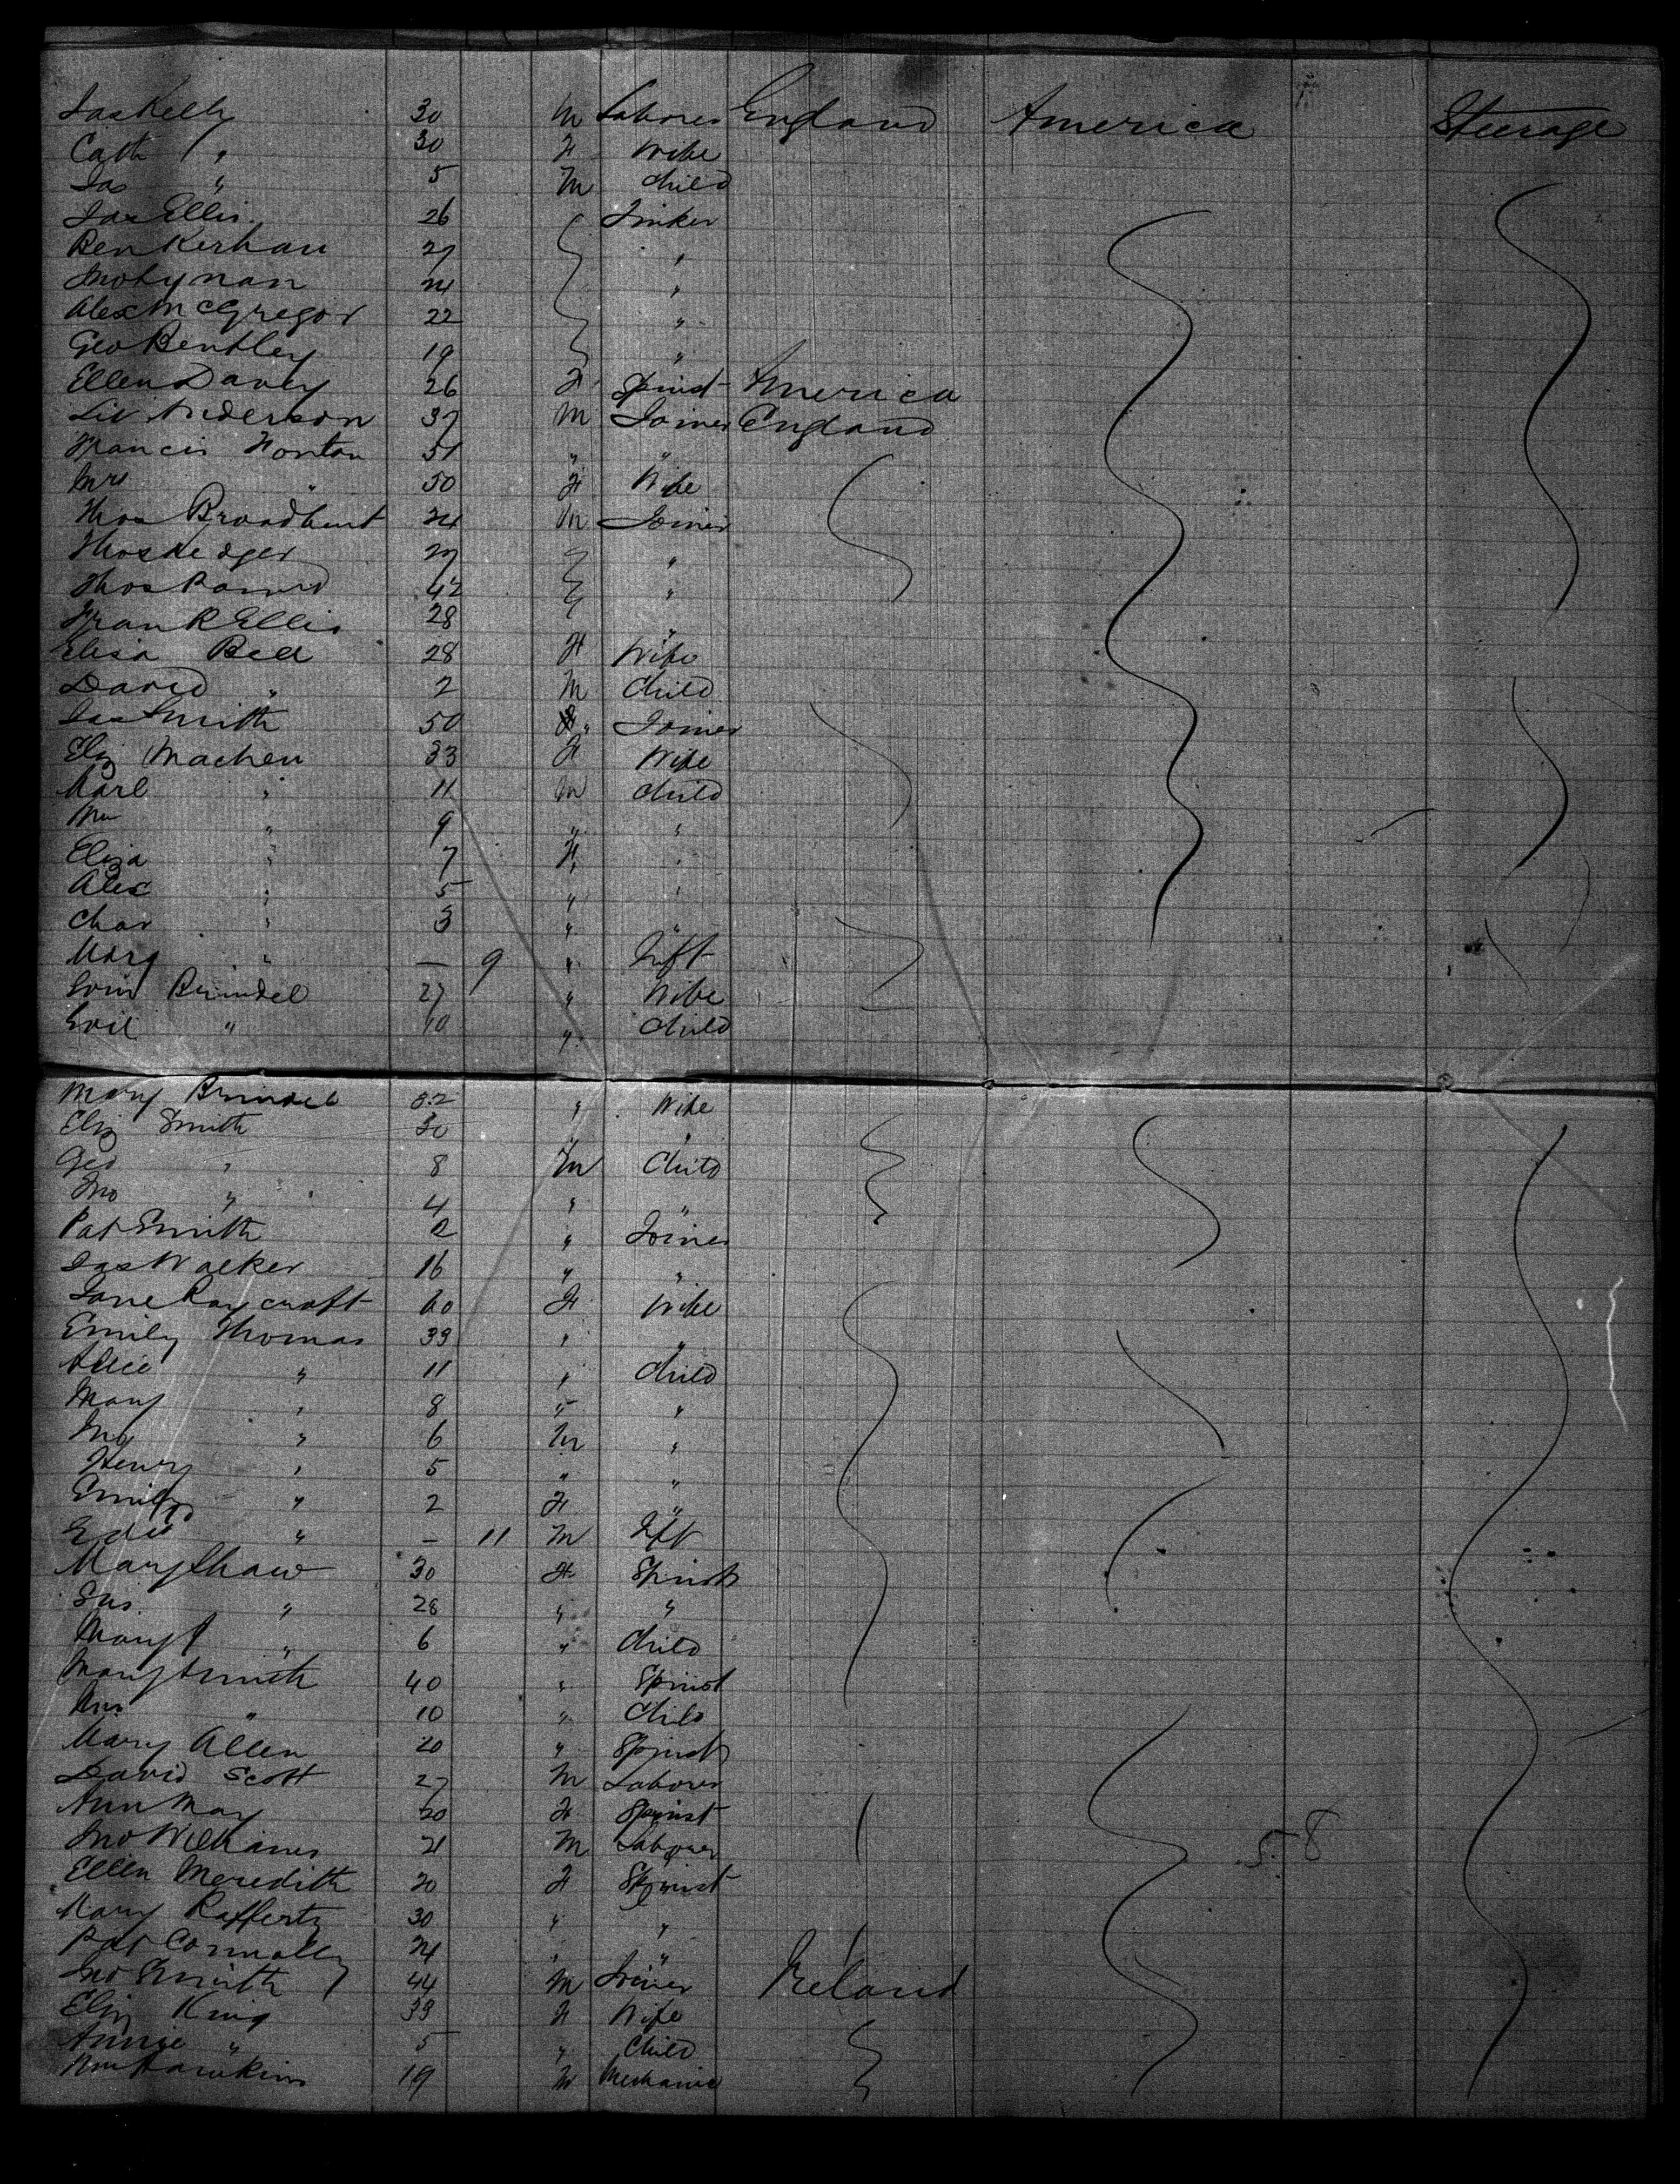 Jas Kelly 30 M Laborer England America Steerage
Cath " 30 F Wife
Jas " 5 M Child
Jas Ellis 26 Tinker
Ben Kershau 27 "
Jno Lynan 24 "
Alex McGregor 22 "
Geo Bentley 19 "
Ellen Davey 26 F Spinst America
Anderson 37 M Joiner England
Francis Horton 51 " "
Mrs " 50 F Wife
Thos Broadhurst 24 M Joiner
Thos Hedger 27 "
Thos 42 "
Frank Ellis 28 "
Eliza Bell 28 F Wife
David " 2 M Child
Jas Smith 50 " Joiner
Eliz Machen 33 F Wife
Karl " 11 M Child
Wm " 9 " "
Eliza " 7 F "
Alex " 5 " "
Char " 3 " "
Marg " — 9 " Inft
Brindel 27 " Wife
" 10 " Child
Mary Brindel 32 " Wife
Eliz Smith 30 " "
Geo " 8 M Child
Jno " 4 " "
Pat Smith 2 " Joiner
Jas Walker 16 " "
Jane Raycraft 60 F Wife
Emily Thomas 39 " "
Alice " 11 " Child
Mary " 8 " "
Jno " 6 M "
Henry " 5 " "
Emily " 2 F "
" — 11 M Inft
Mary Shaw 30 F Spinst
Sus " 28 " "
Mary " 6 " Child
Mary Smith 40 " Spinst
" 10 " Child
Mary Allen 20 " Spinst
David Scott 27 M Laborer
Ann May 20 F Spinst
Jno Williams 21 M Laborer 58
Ellen Meredith 20 F Spinst
Mary Rafferty 30 " "
Pat Connolly 24 " "
Jno Smith 44 M Joiner Ireland
Eliz King 39 F Wife
Annie " 5 " Child
Wm Hawkins 19 M Mechanic